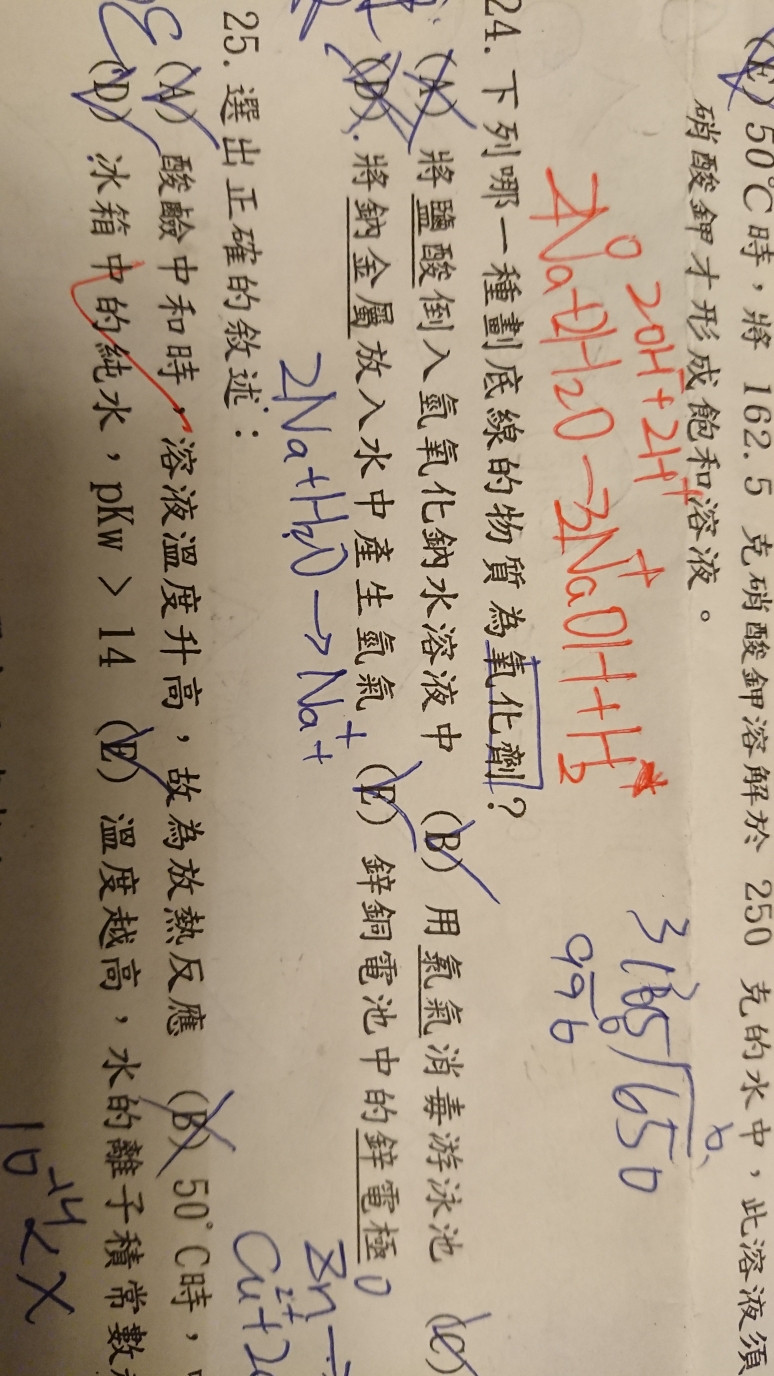 (E) 50°C時，將 162.5 克硝酸鉀溶解於 250 克的水中，此溶液須
硝酸鉀才形成飽和溶液。
2OH⁻+2H⁺
2Na+2H2O→2NaOH+H2
24. 下列哪一種劃底線的物質為氧化劑？
(A) 將鹽酸倒入氫氧化鈉水溶液中 (B) 用氯氣消毒游泳池 (C)
(D) 將鈉金屬放入水中產生氫氣 (E) 鋅銅電池中的鋅電極
2Na+H2O→Na⁺+
Zn→
Cu²⁺+2e
25. 選出正確的敘述：
(A) 酸鹼中和時，溶液溫度升高，故為放熱反應 (B) 50°C時，
(D) 冰箱中的純水，pKw > 14 (E) 溫度越高，水的離子積常數
10⁻¹⁴ < X